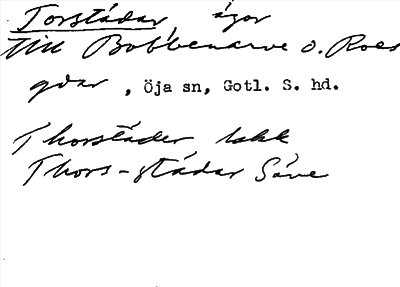 Torstádar, ägor
till Bobbenarve o. Roes
gdar, Öja sn, Gotl. S. hd.
Thorstäder
Thors-städar Säve